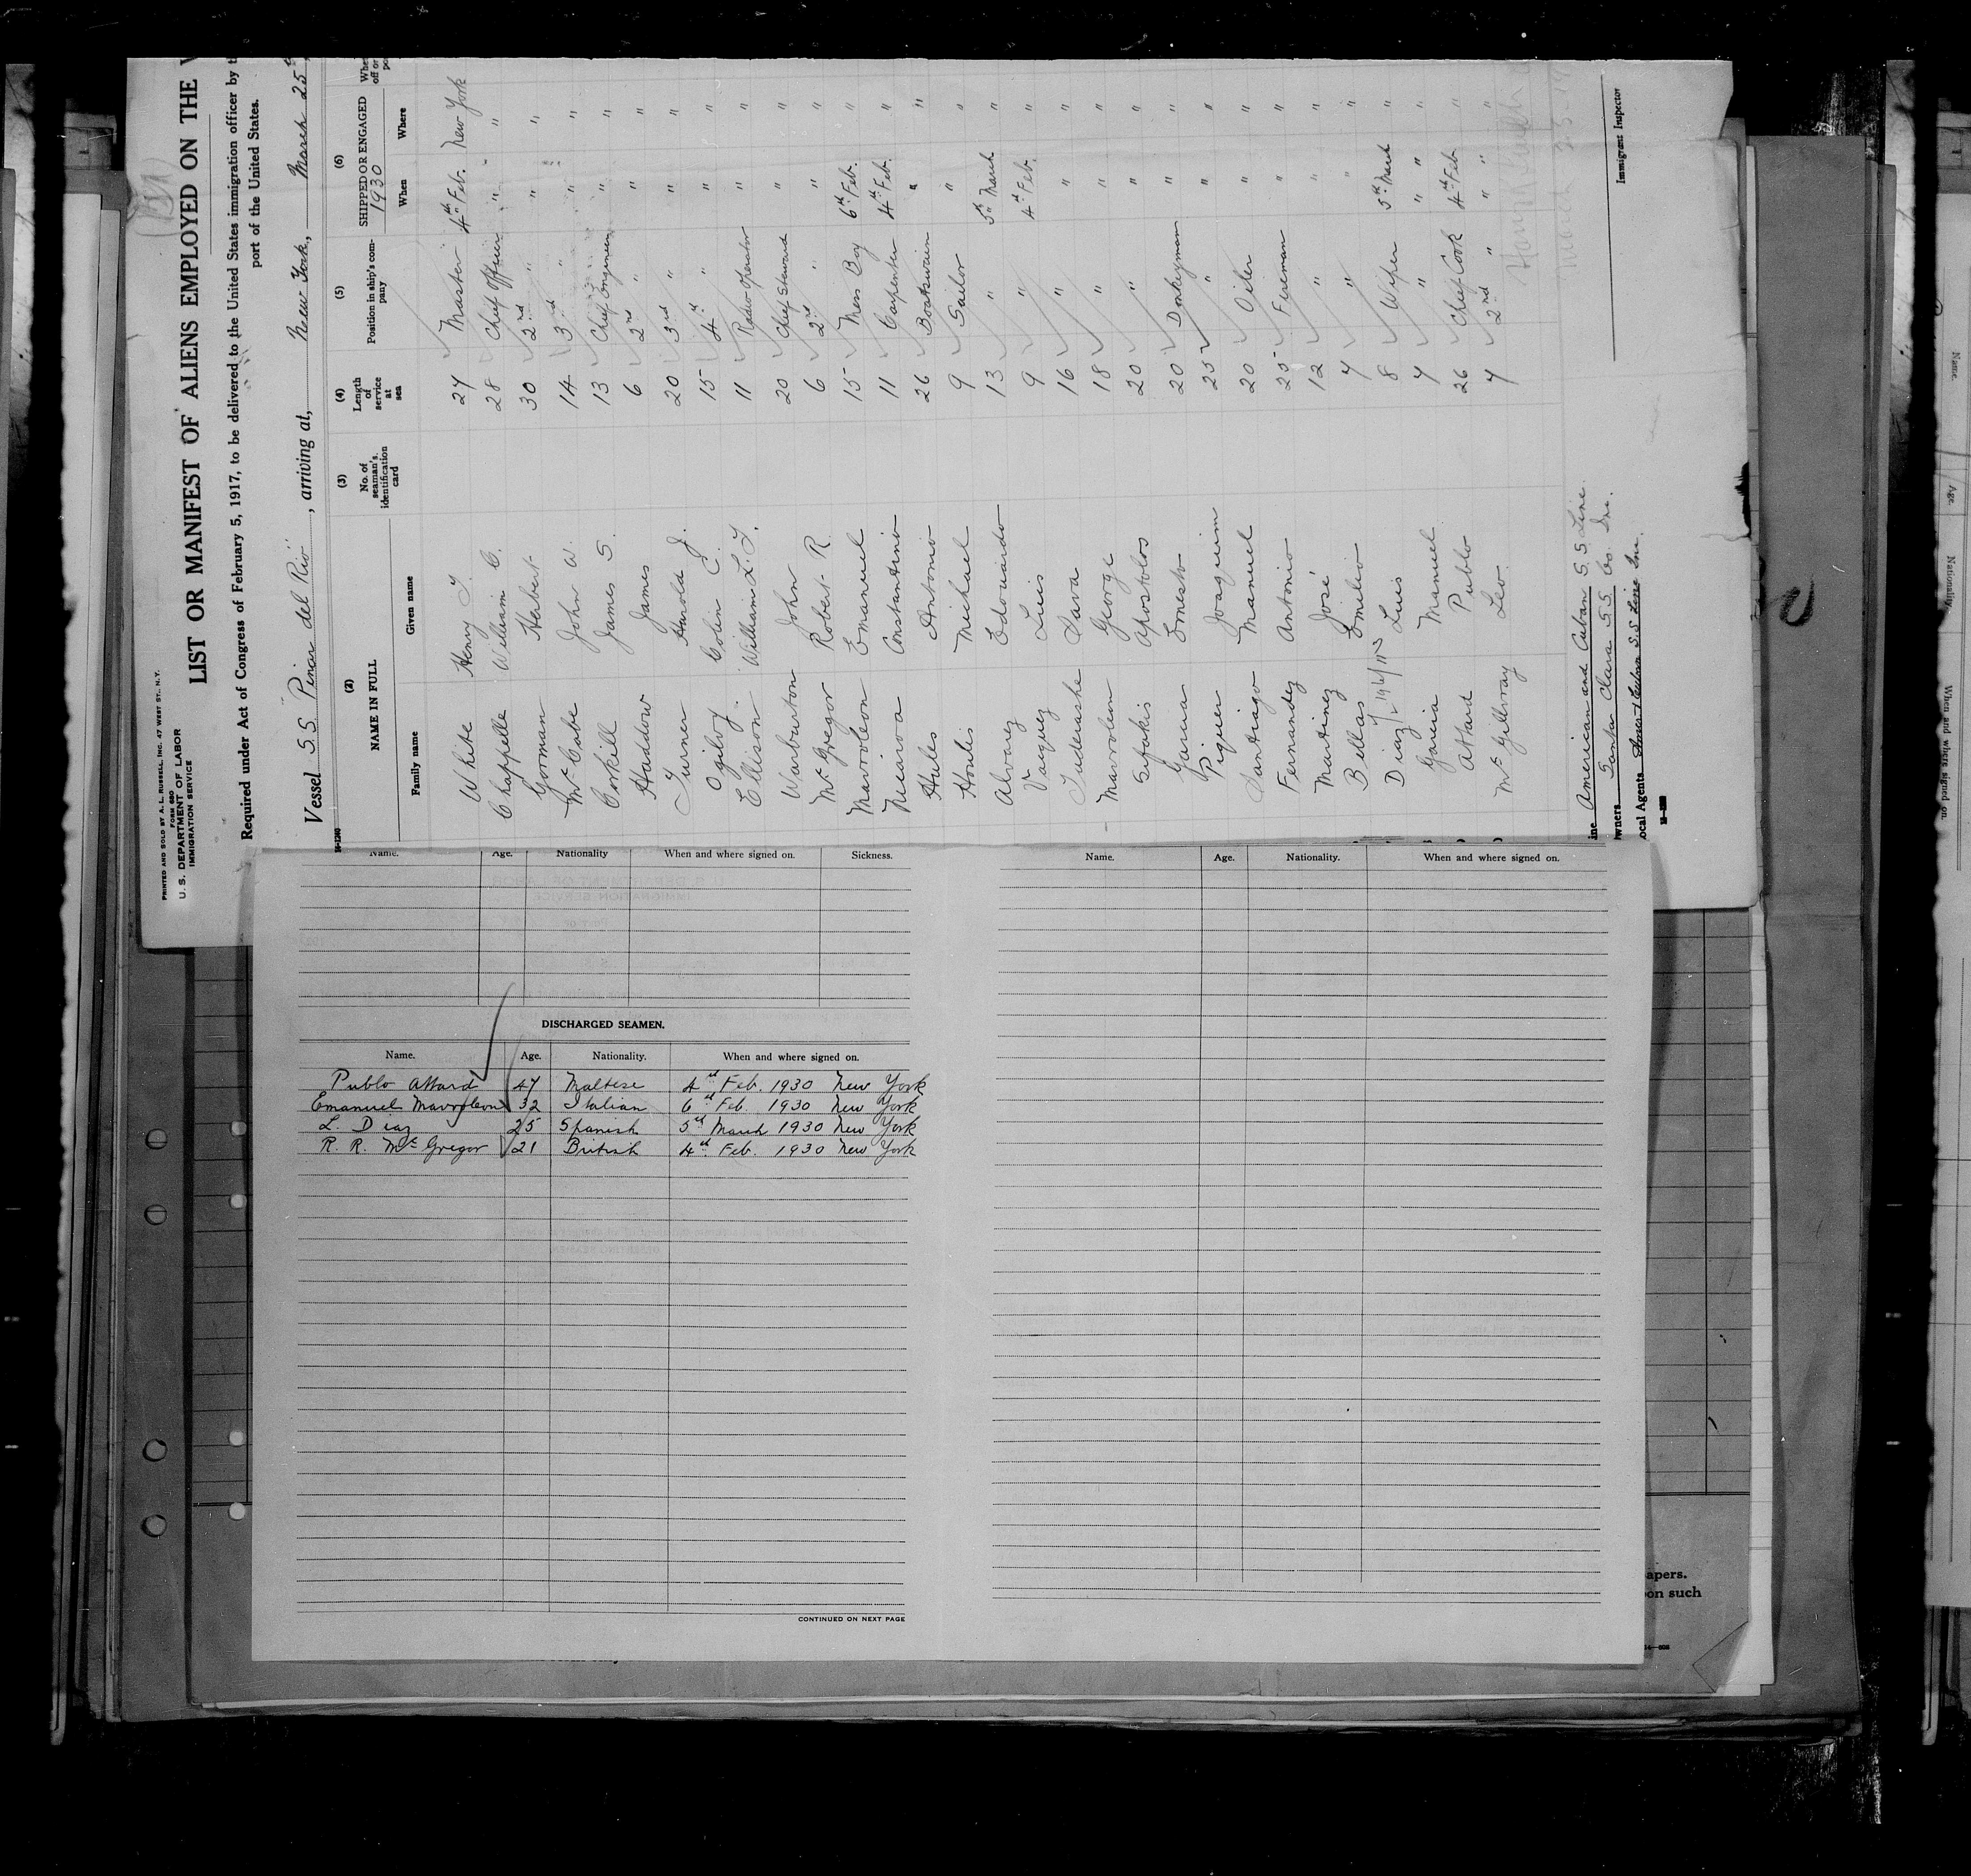 PRINTED AND SOLD BY A. L. RUSSELL, INC. 47 WEST ST., N. Y.
FORM 680
U. S. DEPARTMENT OF LABOR
IMMIGRATION SERVICE
LIST OR MANIFEST OF ALIENS EMPLOYED ON THE V
Required under Act of Congress of February 5, 1917, to be delivered to the United States immigration officer by t
port of the United States.
Vessel S.S. "Pinar del Rio", arriving at, New York, March 25th
(2) (3) (4) (5) (6)
NAME IN FULL No. of seaman's identification card Length of service at sea Position in ship's company SHIPPED OR ENGAGED
1930
Family name Given name When Where
White Henry T. 27 Master 4th Feb. New York
Chappelle William C. 28 Chief Officer " "
Gorman Herbert 30 2nd " " "
McCabe John W. 14 3rd " " "
Corkill James S. 13 Chief Engineer " "
Haddow James 6 2nd " " "
Turner Harold J. 20 3rd " " "
Ogilvy Colin C. 15 4th " " "
Ellison William L. T. 11 Radio Operator " "
Warburton John 20 Chief Steward " "
McGregor Robert R. 6 2nd " " "
Mavroleon Emanuel 15 Mess Boy 6th Feb. "
Constantino 11 Carpenter 4th Feb. "
Hules Antonio 26 Boatswain " "
Houlis Michael 9 Sailor " "
Alvarez Edouardo 13 " 5th March "
Vazquez Luis 9 " 4th Feb. "
Sava 16 " " "
Mavroleon George 18 " " "
Sifakis Apostolos 20 " " "
Garcia Ernesto 20 Donkeyman " "
Piquer Joaquim 25 " " "
Santiago Manuel 20 Oiler " "
Fernandez Antonio 25 Fireman " "
Martinez José 12 " " "
Bellas Emilio 7 " " "
Diaz Luis 8 Wiper 5th March "
Garcia Manuel 7 " " "
Attard Publo 26 Chief Cook 4th Feb. "
McGillvray Leo 7 2nd " " "
ine American and Cuban S.S Line.
wners Santa Clara S.S Co. Inc.
ocal Agents
Immigrant Inspector
Name. Age. Nationality When and where signed on. Sickness.
DISCHARGED SEAMEN.
Name. Age. Nationality. When and where signed on.
Publo Attard 47 Maltese 4th Feb. 1930 New York
Emanuel Mavroleon 32 Italian 6th Feb. 1930 New York
L. Diaz 25 Spanish 5th March 1930 New York
R. R. McGregor 21 British 4th Feb. 1930 New York
CONTINUED ON NEXT PAGE
Name. Age. Nationality. When and where signed on.
apers.
on such
Name. Age. Nationality When and where signed on.